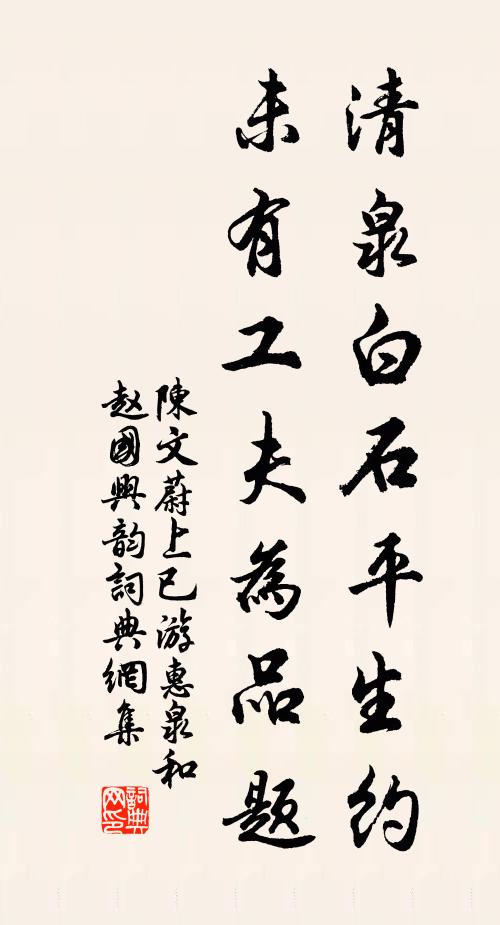 清泉白石平生約
未有工夫為品題
陳文蔚上巳游惠泉和
趙國興韵詞典網集
詞典网印